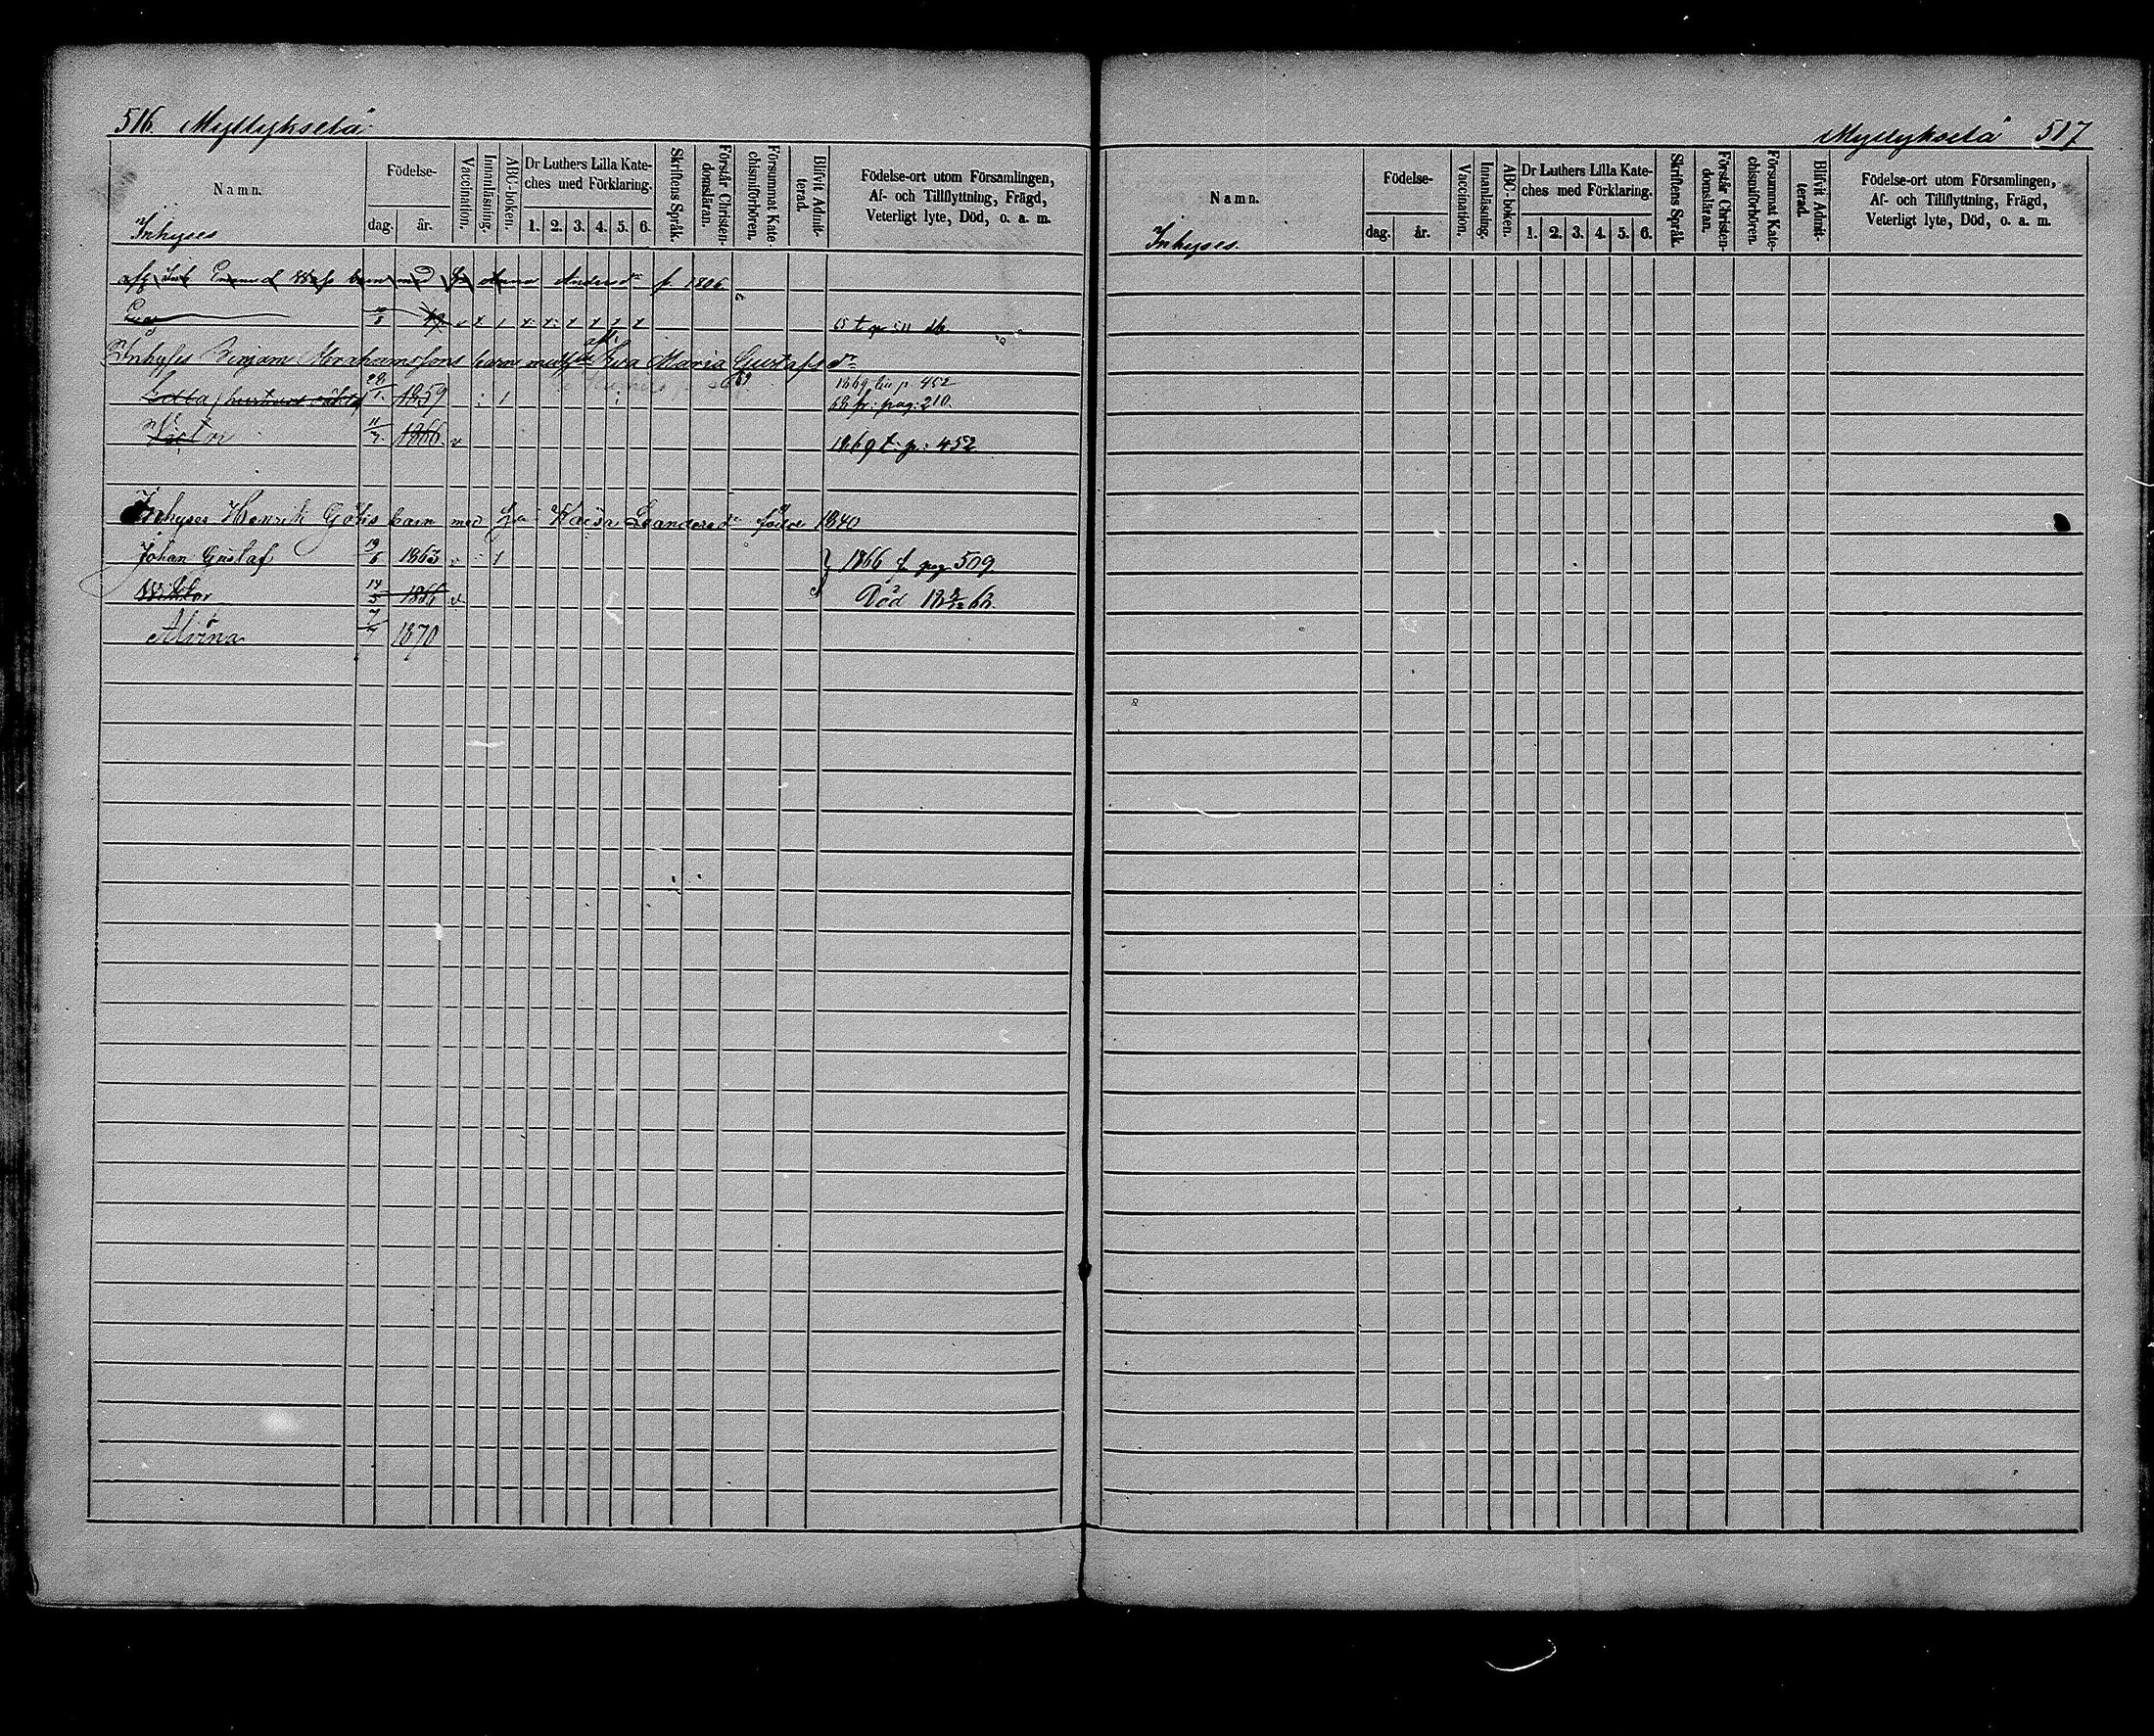 516. Myllykselä
Namn.
Födelse-
dag.
år.
Vaccination.
Innanläsning.
ABC-boken.
Dr Luthers Lilla Kate-
ches med Förklaring.
1. 2. 3. 4. 5. 6.
Skriftens Språk.
Förstår Christen-
domsläran.
Försummat Kate-
chismiförhören.
Blifvit Admit-
terad.
Födelse-ort utom Församlingen,
Af- och Tillflyttning, Frägd,
Veterligt lyte, Död, o. a. m.
Inhyses
barn med Anna Andersdr f. 1806
Eva 49
Inhyses Benjam Abrahamssons barn med Eva Maria Gustafsdr
28/1 1859 1869 p. 452
68 fr: pag: 210.
11/7 1866 v 1869 t. p: 452
Inhyses Henrik barn med Leandersdr född 1840
Johan Gustaf 19/6 1863 v 1 1866 f. pag 509
Wiktor 14/5 1866 v Död 18 8/12 68.
Alvina 7/7 1870
Myllykselä 517
Namn.
Födelse-
dag.
år.
Vaccination.
Innanläsning.
ABC-boken.
Dr Luthers Lilla Kate-
ches med Förklaring.
1. 2. 3. 4. 5. 6.
Skriftens Språk.
Förstår Christen-
domsläran.
Försummat Kate-
chismiförhören.
Blifvit Admit-
terad.
Födelse-ort utom Församlingen,
Af- och Tillflyttning, Frägd,
Veterligt lyte, Död, o. a. m.
Inhyses.